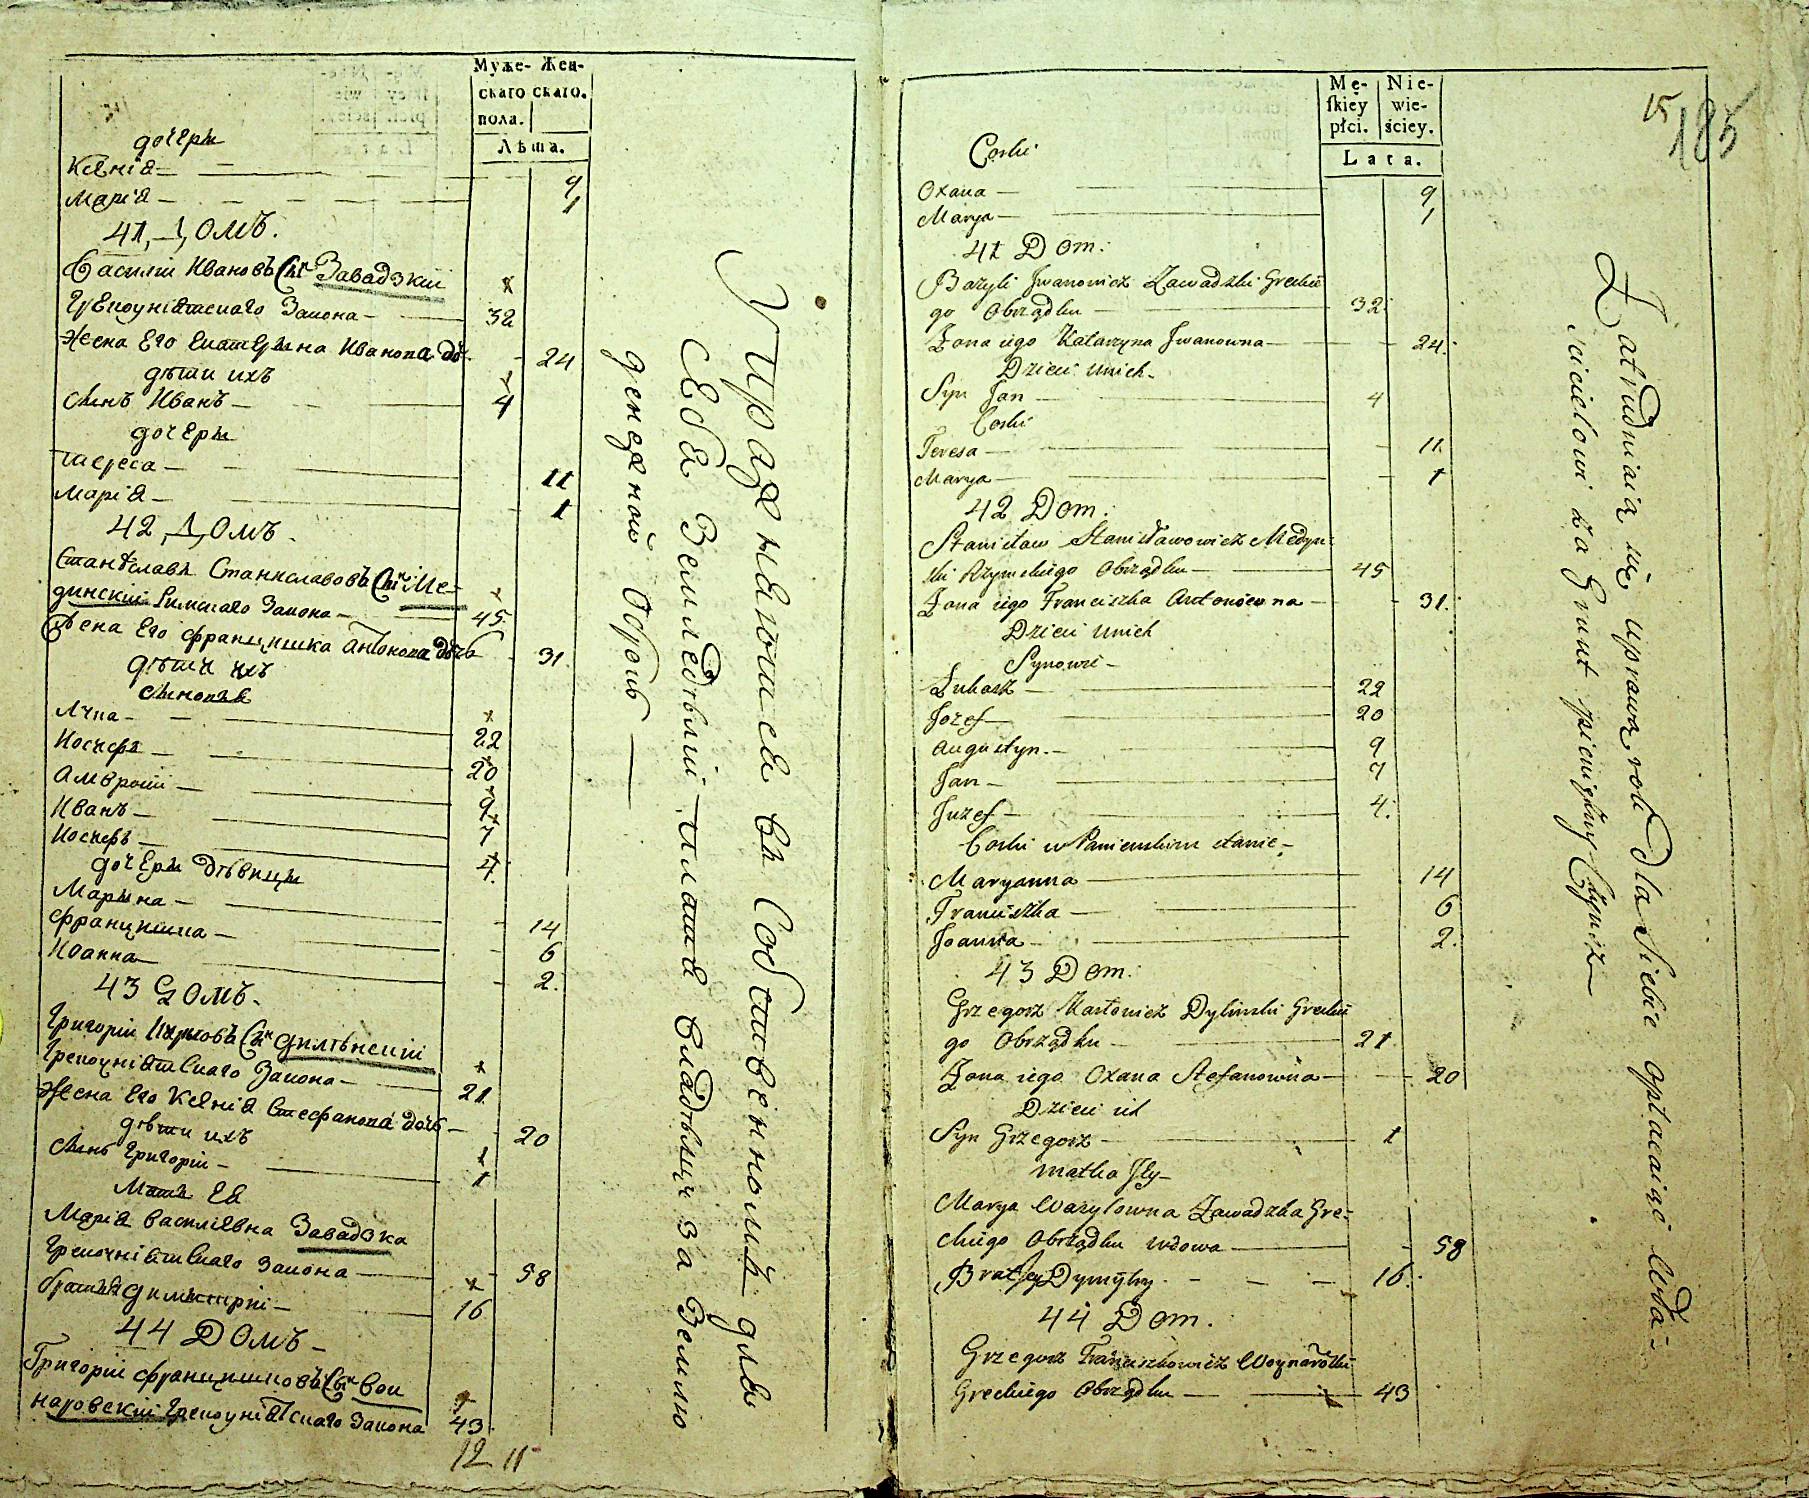 Муже- Жен-
скаго скаго.
пола.
Лѣта.
дочери
Ксенія 9
Марія 1
41, Домъ.
Василій Ивановъ Сынъ Завадзкій
Грекоуніятскаго Закона 32
Жена Его Екатерина Иванова дочь 24
дѣти ихъ
Сынъ Иванъ 4
дочери
Тереса 11
Марія 1
42, Домъ.
Станіславъ Станиславовъ Сынъ Ме-
динскій Римскаго Закона 45.
Жена Его Францишка Антонова дочь 31
дѣти ихъ
Сыновья
Лука 22
Иосифъ 20
Амвросій 9
Иванъ 7
Иосифъ 4.
дочери дѣвицы
Марина 14
Францишка 6
Иоанна 2.
43 Домъ.
Григорій Сынъ Дилѣнскій
Грекоуніятскаго Закона 21
Жена Его Ксенія Стефанова дочь 20
дѣти ихъ
Сынъ Григорій 1
Мать Ея
Марія Василіевна Завадзка
Грекоуніятскаго Закона 58
братъ Димитрій 16
44 Домъ
Григорій Францишковъ Сынъ Вои
наровскій Грекоуніятскаго Закона 43
12 11
Упражняются въ Собственномъ для
Себя Земледѣліи платя владѣльцу за Землю
денежной Оброкъ
15
185
Mę- Nie-
skiey wie-
płci. ściey.
Lata.
Corki
Oxana 9
Marya 1
41 Dom.
Bazyli Jwanowicz Zawadzki Greckie
go Obrządku 32
Żona iego Katarzyna Jwanowna 24.
Dzieci unich
Syn Jan 4
Corki
Teresa 11.
Marya 1
42 Dom.
Stanisław Stanisławowicz Medyń:
ski Rzymskiego Obrządku 45
Żona iego Franciszka Antoniowna 31.
Dzieci unich
Synowie
Łukasz 22
Jozef 20
Augustyn. 9
Jan 7
Juzef 4.
Corki w Panienskim stanie
Maryanna 14
Franciszka 6
Joanna 2.
43 Dom.
Grzegorz Dyliński Greckie
go Obrządku 21
Żona iego Oxana Stefanowna 20
Dzieci ich
Syn Grzegorz 1
matka Jey
Marya Wazylowna Zawadzka Gre:
ckiego Obrządku wdowa 58
Brat Jey Dymitry 16.
44 Dom.
Grzegorz Franciszkowicz Woynarowski
Greckiego Obrządku 43
Zatrudniaią się uprawą roli dla Siebie opłacaiąc Wła:
scicielowi za Grunt pieniężny Czynsz